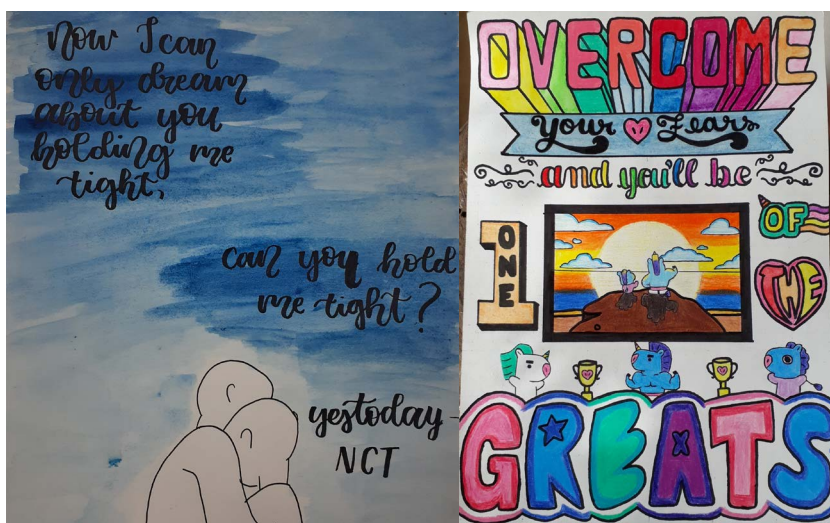 Now I can
only dream
about you
holding me
tight,
can you hold
me tight?
yestoday -
NCT
OVERCOME
Your Fears
and you'll be
1 ONE
OF
THE
GREATS